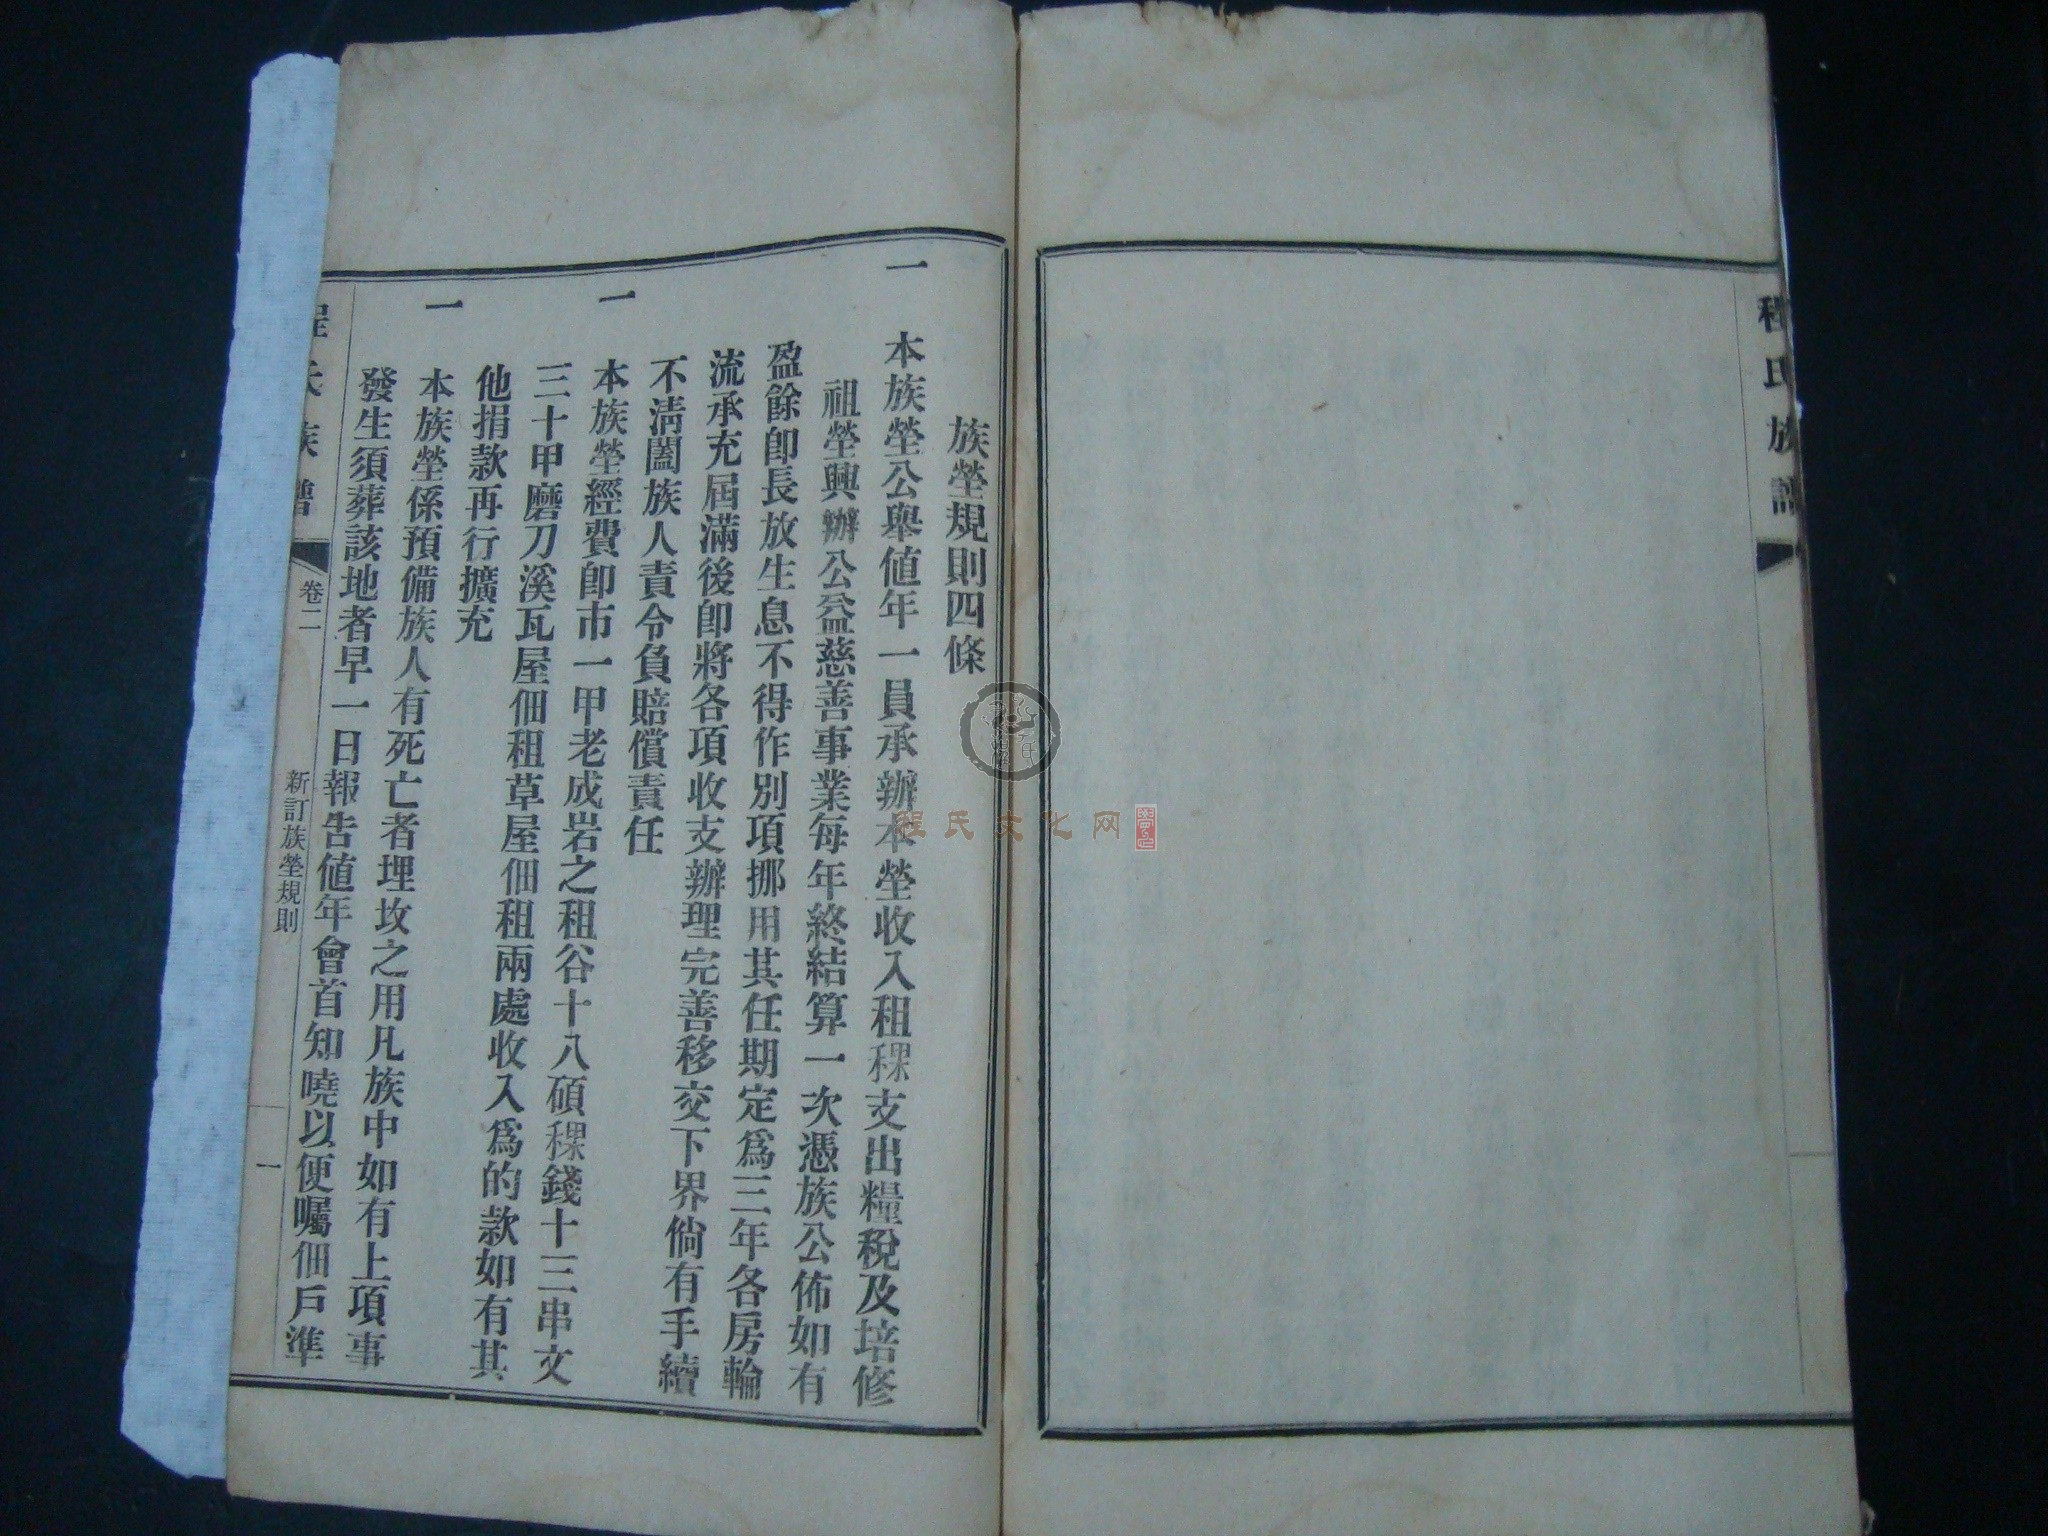 程氏族譜
族塋規則四條
一 本族塋公舉值年一員承辦本塋收入租稞支出糧稅及培修
祖塋興辦公益慈善事業每年終結算一次憑族公佈如有
盈餘卽長放生息不得作別項挪用其任期定爲三年各房輪
流承充屆滿後卽將各項收支辦理完善移交下界倘有手續
不淸闔族人責令負賠償責任
一 本族塋經費卽市一甲老成岩之租谷十八碩稞錢十三串文
三十甲磨刀溪瓦屋佃租草屋佃租兩處收入爲的款如有其
他捐款再行擴充
一 本族塋係預備族人有死亡者埋坟之用凡族中如有上項事
發生須葬該地者早一日報告値年會首知曉以便囑佃戶準
程氏族譜
卷二
新訂族塋規則
一
程氏文化网